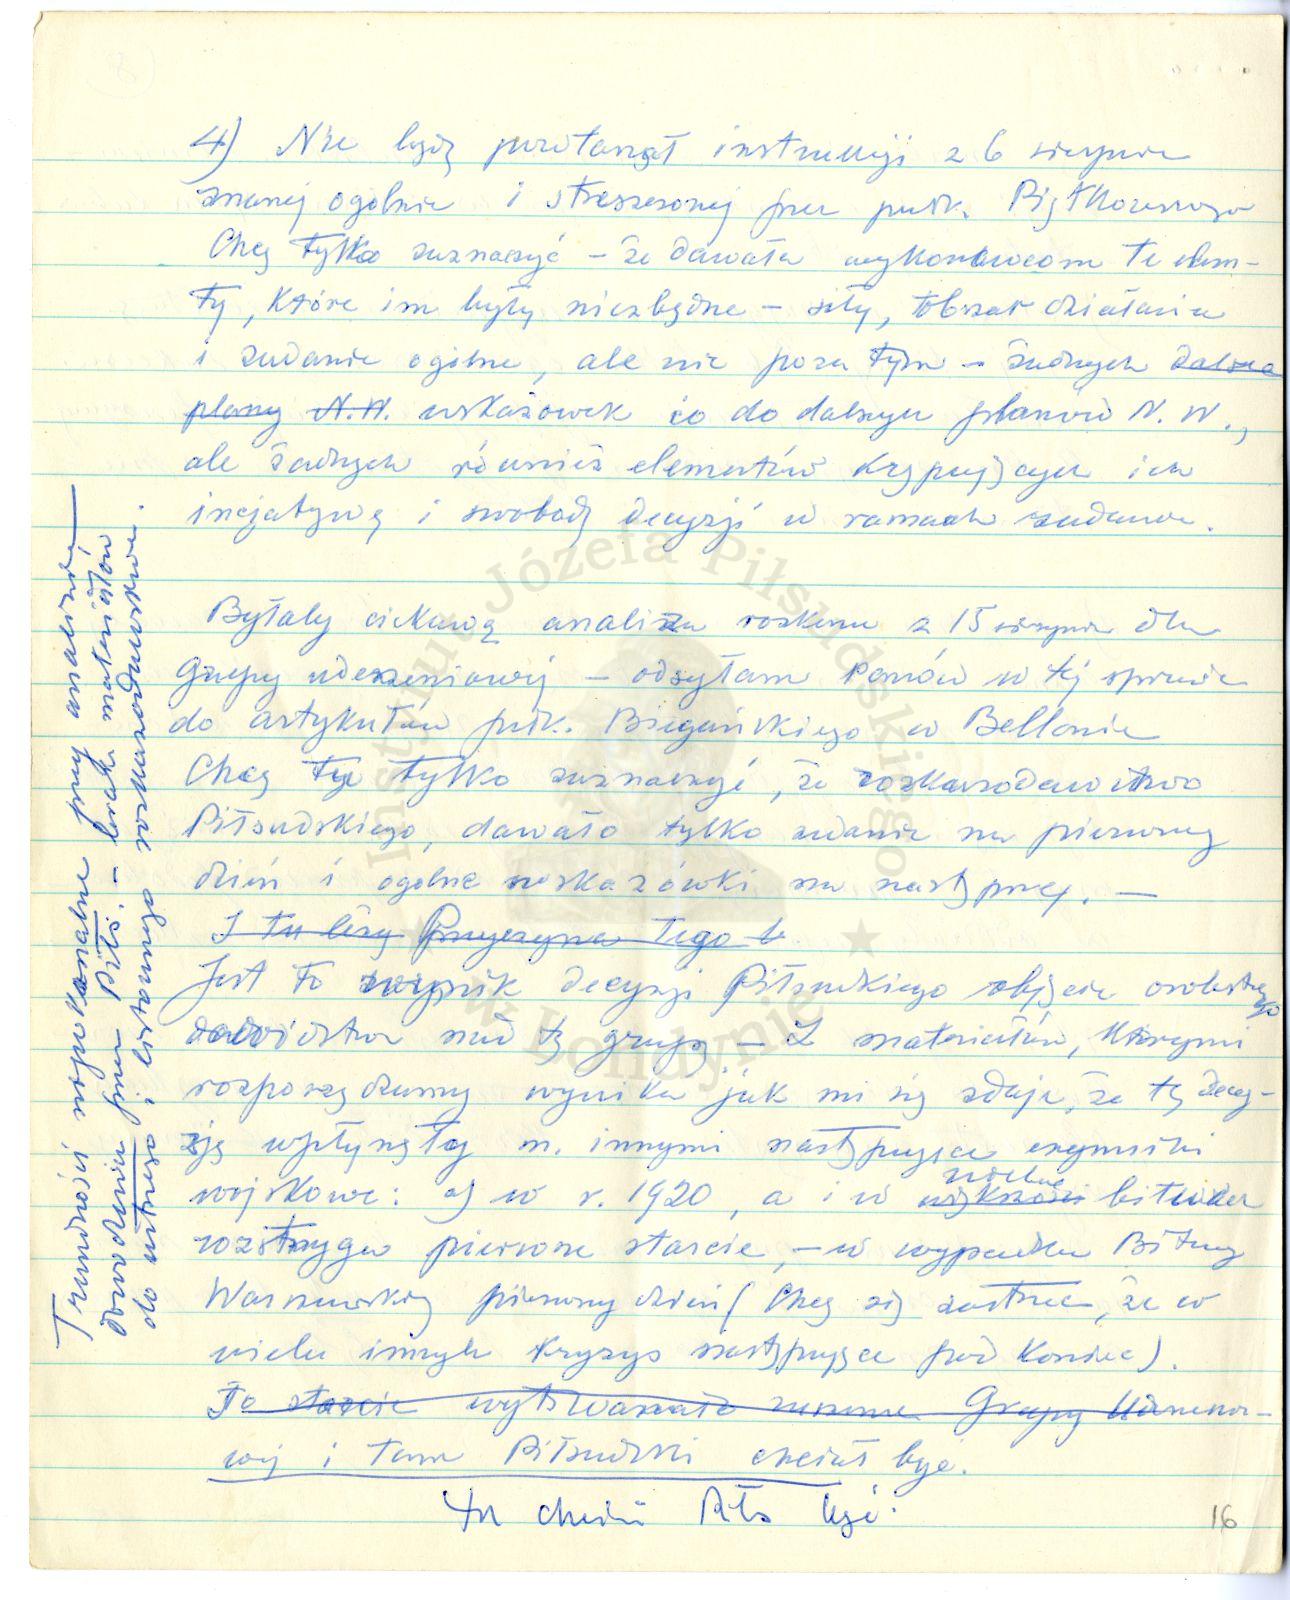 4) Nie będę powtarzał instrukcji z 6 sierpnia
znanej ogólnie i streszczonej przez pułk. Piątkowskiego
Chcę tylko zaznaczyć – że dawała wykonawcom te elemen-
ty, które im były niezbędne – siły, obszar działania
i zadanie ogólne, ale nic poza tym – żadnych dalsze
plany N.W. wskazówek co do dalszych planów N.W.,
ale żadnych również elementów krępujących ich
inicjatywę i swobodę decyzji w ramach zadania.
Byłaby ciekawą analiza rozkazu z 15 sierpnia dla
Grupy uderzeniowej – odsyłam Panów w tej sprawie
do artykułów płk. Biegańskiego w Bellonie
Chcę tylko zaznaczyć, że rozkazodawstwo
Piłsudskiego, dawało tylko zadanie na pierwszy
dzień i ogólne wskazówki na następny. –
I tu leży Przyczyna tego
Jest to wynik decyzji Piłsudskiego objęcia osobistego
dowództwa nad tą grupą – Z materiałów, którymi
rozporządzamy wynika jak mi się zdaje, że tę decy-
zję wpłynęły m. innymi następujące czynniki
wojskowe: a) w r. 1920, a i w większości bitwach
rozstrzyga pierwsze starcie, – w wypadku Bitwy
Warszawskiej pierwszy dzień (Chcę się zastrzec, że w
wielu innych kryzys następuje pod koniec).
To starcie wytwarzało Grupy Uderzenio-
wej i tam Piłsudski chciał być.
Tu chciał Piłs być.
Trudności niepokonalne przy analizie
dowodzenia przez Piłs. – brak materiałów
do ustnego i listownego rozkazodawstwa.
16
Instytut Józefa Piłsudskiego
w Londynie